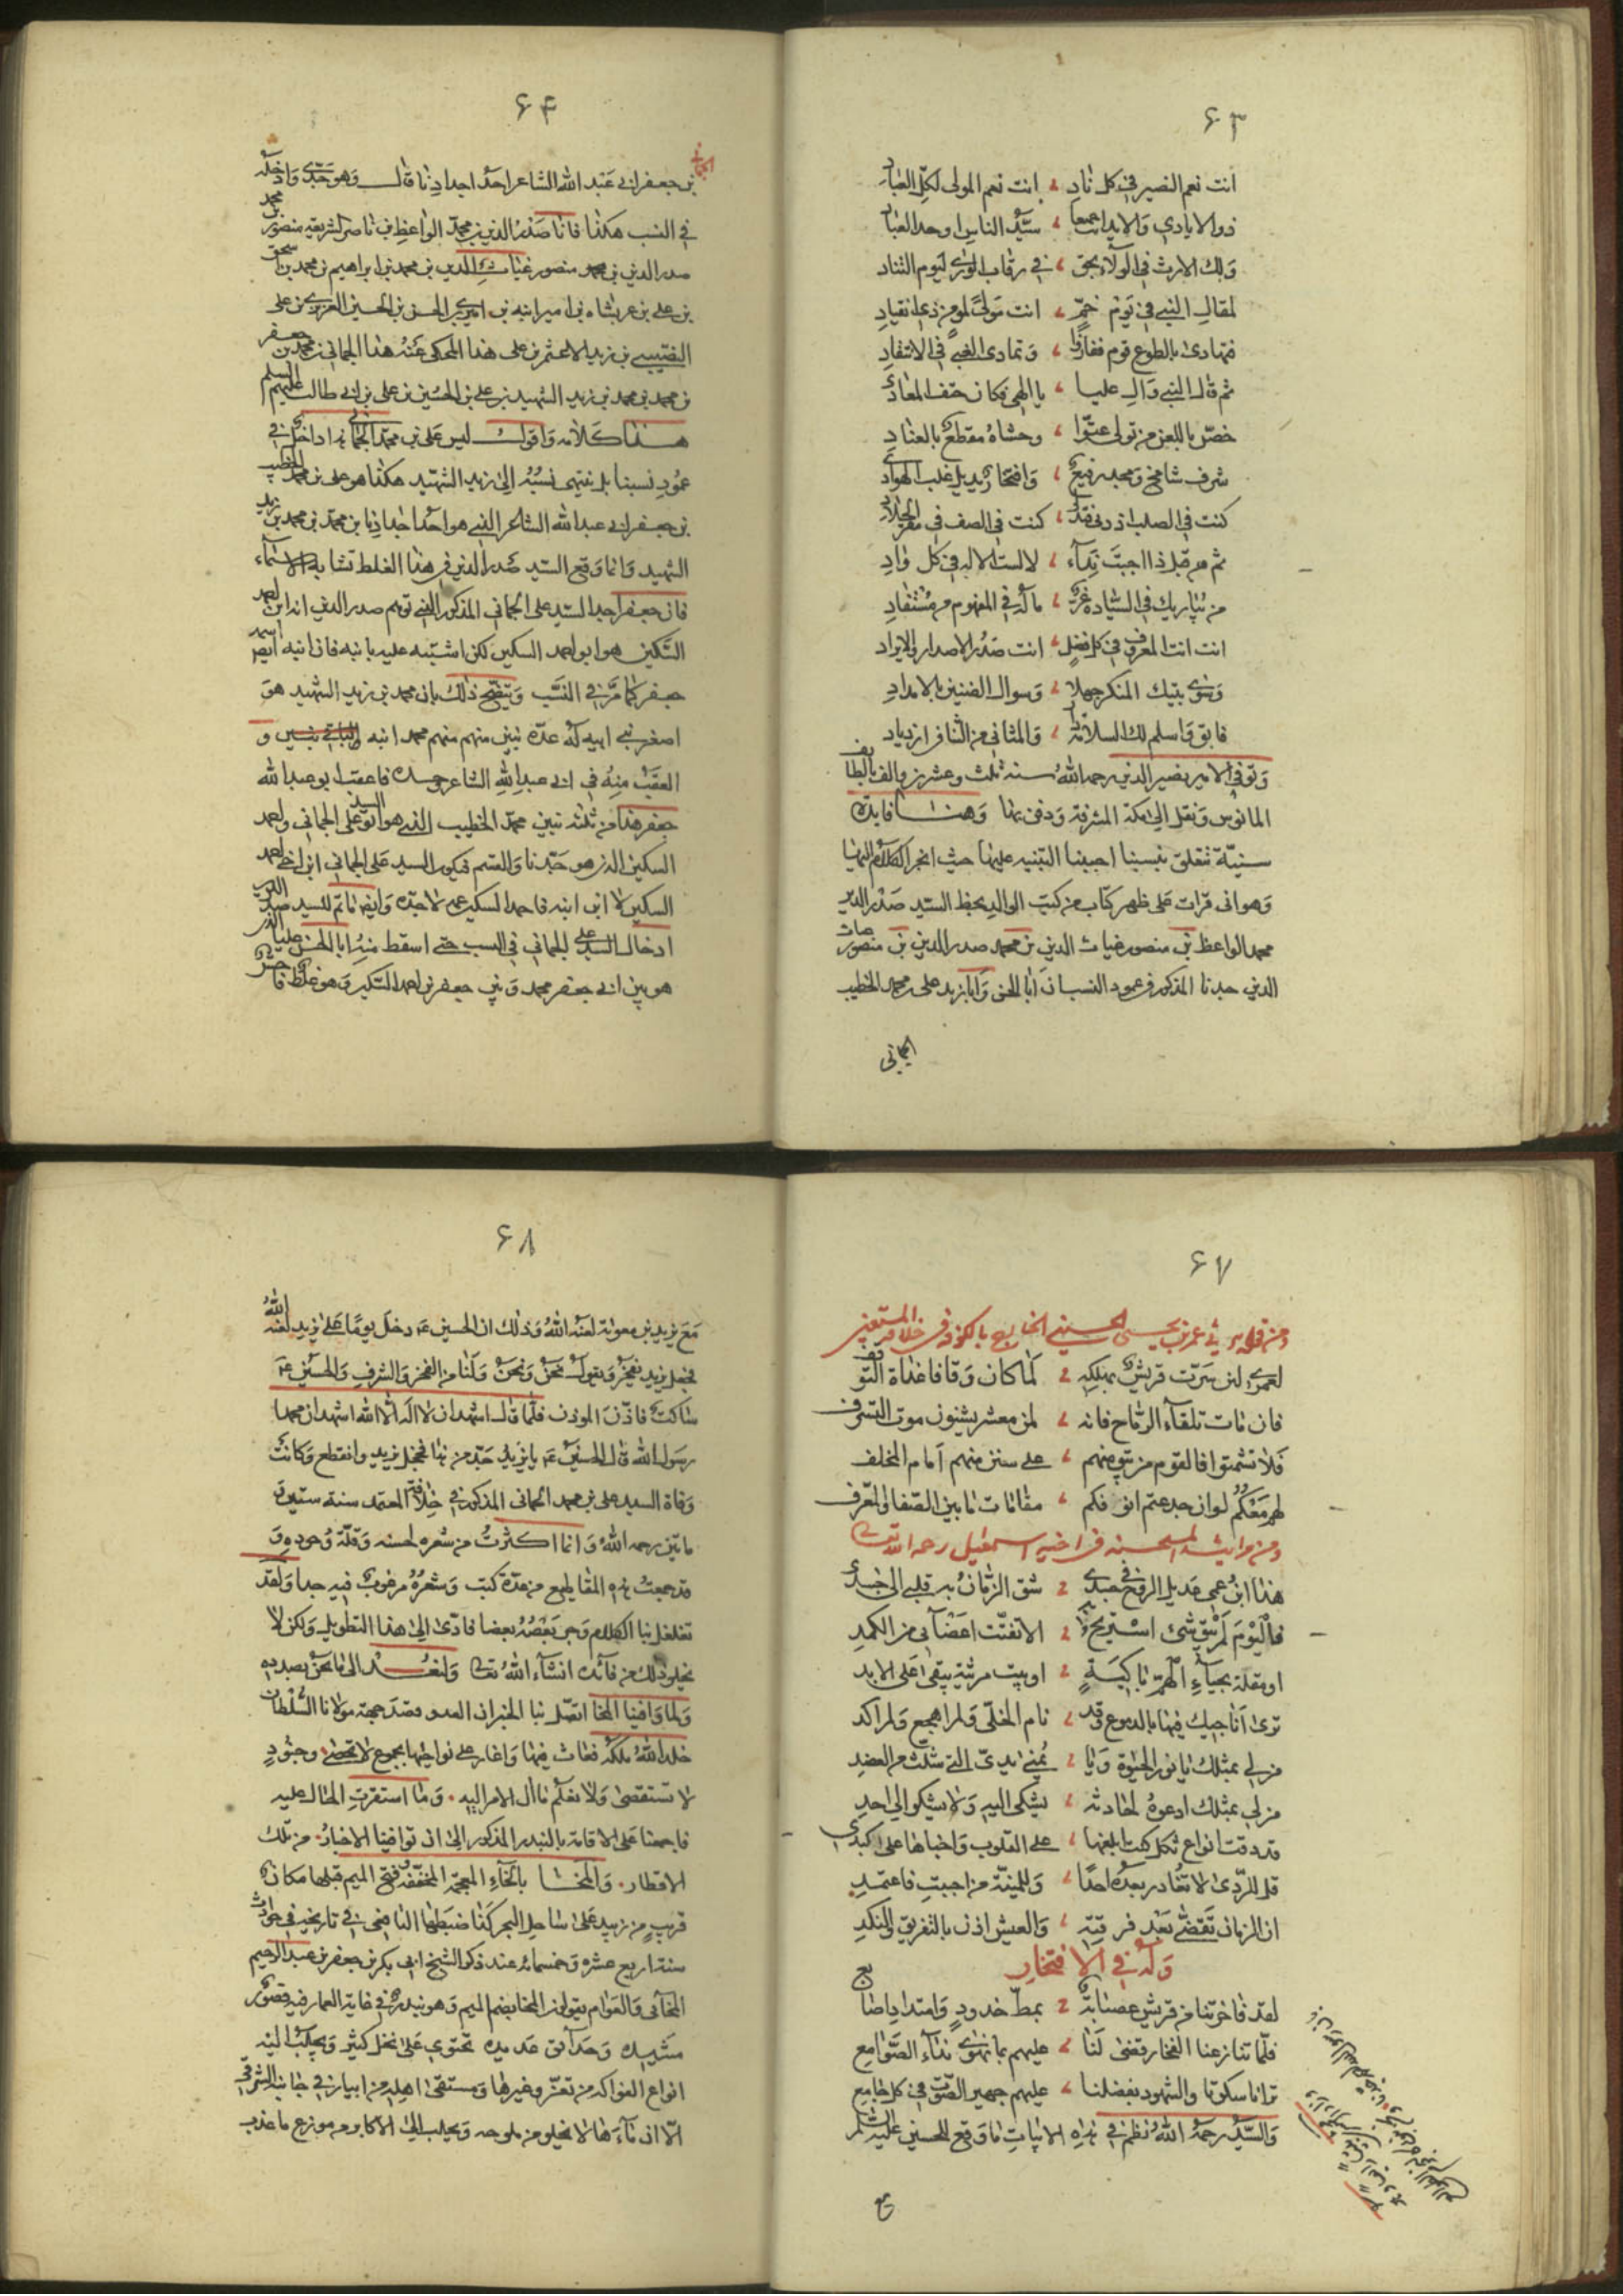 ٦٣
انت نعم النصير في كل ناد ، انت نعم المولى لكل العباد
ذو الايادي والايد اجمعا ، سيد الناس اوحد العباد
ولك الارث في الولاء بحق ، في رقاب الورى ليوم التناد
لمقال النبي في يوم خم ، انت مولى لمومن ذي انقياد
فتهادى بالطوع قوم ففازوا ، وتمادى الغبي في الانتقاد
ثم قال النبي وال عليا ، يا الهي فكان حتف المعاد
خص باللعن من تولى عتوا ، وحشاه مقطع بالعناد
شرف شامخ ومجد رفيع ، وافتخار يديل غلب الهوادي
كنت في الصلب اذ دنى فتدلى ، كنت في الصف في مقر الجلاد
ثم من قبل ذا اجبت نداء ، لا لست الاله في كل واد
من يباريك في السيادة غر ، ماله في المفهوم من مستفاد
انت انت المعروف في كل فضل ، انت صدر الاصدار والايراد
وسوى بيتك المنكر جهلا ، وسوال الضنين بالامداد
فابق واسلم لك السلامة دابا ، والمثاني من الثنا في ازدياد
وتوفي الامير نصير الدين رحمه الله سنة ثلث وعشرين والف بالطايف
المانوس ونقل الى مكة المشرفة ودفن بها وهنا فايدة
سنية تتعلق بنسبنا احببنا التنبيه عليها حيث انجر الكلام اليها
وهو اني قرات على ظهر كتاب من كتب الوالد بخط السيد صدر الدين
محمد الواعظ بن منصور غياث الدين بن محمد صدر الدين بن منصور غياث
الدين جدنا المذكور في عمود النسب ان ابا الحسن وابا زيد علي بن محمد الخطيب
الحماني
٦٤
الحماني
بن جعفر ابي عبد الله الشاعر احد اجدادنا قال وهو جدي وادخله
في النسب هكذا فانا صدر الدين محمد الواعظ بن ناصر الشريعة منصور بن محمد
صدر الدين بن محمد منصور غياث الدين بن محمد بن ابراهيم بن محمد بن اسحق
بن علي بن عربشاه بن اميرانبه بن اميري بن الحسن بن الحسين العزيزي بن علي
النصيبي بن زيد الاعثم بن علي هذا المحكي عنه هذا الحماني بن محمد بن جعفر
بن محمد بن محمد بن زيد الشهيد بن علي بن الحسين بن علي بن ابي طالب عليهم السلم
هذا كلامه واقول ليس علي بن محمد الحماني هذا داخل في
عمود نسبنا بل ينتهي نسبه الى زيد الشهيد هكذا هو علي بن محمد الخطيب
بن جعفر ابي عبد الله الشاعر الذي هو احد اجدادنا بن محمد بن محمد بن زيد
الشهيد وانما وقع السيد صدر الدين في هذا الغلط تشابه الاسماء
فان جعفر اجد السيد علي الحماني المذكور الذي توهم صدر الدين انه ابن احمد
السكين هو ابو احمد السكين لكن اشتبه عليه بابنه فان ابنه ايضا اسمه
جعفر كما مر في النسب ويتضح ذلك بان محمد بن زيد الشهيد هو
اصغر بني ابيه له عدة بنين منهم محمد ابنه و
العقب منه في ابي عبد الله الشاعر وحده فاعقب ابو عبد الله
جعفر هذا من ثلثة بنين محمد الخطيب الذي هو ابو السيد علي الحماني واحمد
السكين الذي هو جدنا والقسم فيكون السيد علي الحماني ابن اخي احمد
السكين لا ابن ابنه فاحمد السكين عمه لا جده وايضا ماتم للسيد صدر الدين
ادخال السيد علي الحماني في النسب حتى اسقط منه ابا الحسن عليا الذي
هو بين ابي جعفر محمد وبين جعفر بن احمد السكين وهو غلط فاحش
٦٧
ومن قوله يرثي عمر بن يحيى الحسيني الخارج بالكوفة في خلافة المستعين
لعمري لئن سرت قريش بهلكه ، لما كان وقافا غداة التوقف
فان مات تلقاء الرماح فانه ، لمن معشر يشنون موت التترف
فلا تشمتوا فالقوم من يبق منهم ، على سنن منهم امام المخلف
لهم معكم لو ان جدعتم انوفكم ، مقامات ما بين الصفا والمعرف
ومن مراثيه المستحسنه في اخيه اسمعيل رحمه الله تعالى
هذا ابن عمي عديل الروح في جسدي ، شق الزمان به قلبي الى جسدي
فاليوم لم يبق شي استريح به ، الا تفتت اعضائي من الكمد
او مقلة بحياء الهم باكية ، او بيت مرثية يبقى على الابد
ترى اناجيك فيها بالدموع وقد ، نام الخلي ولم اهجع ولم اكد
من لي بمثلك يا نور الحيوة ويا ، يمنى يدي التي شلت من العضد
من لي بمثلك ادعوه لحادثة ، يشكى اليه ولا يشكو الى احد
قد ذقت انواع ثكل كنت ابلغها ، على القلوب واخباها على كبدي
قل للردى لا تغادر بعده احدا ، وللمنية من احببت فاعتمد
ان الزمان تقضى بعد فرقته ، والعيش اذن بالتفريق والنكد
وله في الافتخار
لقد فاخرتنا من قريش عصابة ، بمط خدود وامتداد اصابع
فلما تنازعنا الفخار قضى لنا ، عليهم بما نهوى نداء الصوامع
ترانا سكوتا والشهود بفضلنا ، عليهم جهير الصوت في كل جامع
والسيد رحمه الله نظم في هذه الابيات ما وقع للحسين عليه السلم
مع
٦٨
مع يزيد بن معوية لعنه الله وذلك ان الحسين عم دخل يوما على يزيد لعنه الله
فجعل يزيد يفتخر ويقول نحن ونحن ولنا من الفخر والشرف والحسين عم
ساكت فاذن الموذن فلما قال اشهد ان لا اله الا الله اشهد ان محمدا
رسول الله قال الحسين عم يا يزيد جد من هذا فخجل يزيد وانقطع وكانت
وفاة السيد علي بن محمد الحماني المذكور في خلافة المعتمد سنة ستين و
مايتين رحمه الله وانما اكثرت من شعره لحسنه وقلة وجوده و
قد جمعت هذه المقاطيع من عدة كتب وشعره مرغوب فيه جدا ولقد
تغلغل بنا الكلام وجر بعضه بعضا فادى الى هذا التطويل ولكن لا
يخلو ذلك من فائدة انشاء الله تعالى ولنعد الى ما نحن بصدده
ولما وافينا المخا اتصل بنا الخبر ان العدو قصد جهة مولانا السلطان
خلد الله ملكه فعاث فيها واغار على نواحيها بجموع لا تحصى وجنود
لا تستقصى ولا نعلم ما ال الامر اليه . وما استقرت الحال عليه
فاجمعنا على الاقامة بالبندر المذكور الى ان توافينا الاخبار . من تلك
الاقطار . والمخا بالخاء المعجمة المخففة وفتح الميم قبلها مكان
قريب من زبيد على ساحل البحر كذا ضبطها اليافعي في تاريخه في حوادث
سنة اربع عشرة وخمسمائة عند ذكر الشيخ ابي بكر بن جعفر بن عبد الرحيم
المخائي والعوام يقولون المخا بضم الميم وهو بندر في غاية العمار فيه قصور
مشيدة وحدائق عديدة تحتوي على نخل كثير ويجلب اليه
انواع الفواكه من تعز وغيرها ومستقى اهله من ابيار في جانبه الشرقي
الا ان ماءها لا يخلو من ملوحه ويجلب الى الاكابر من موزع ما عذب